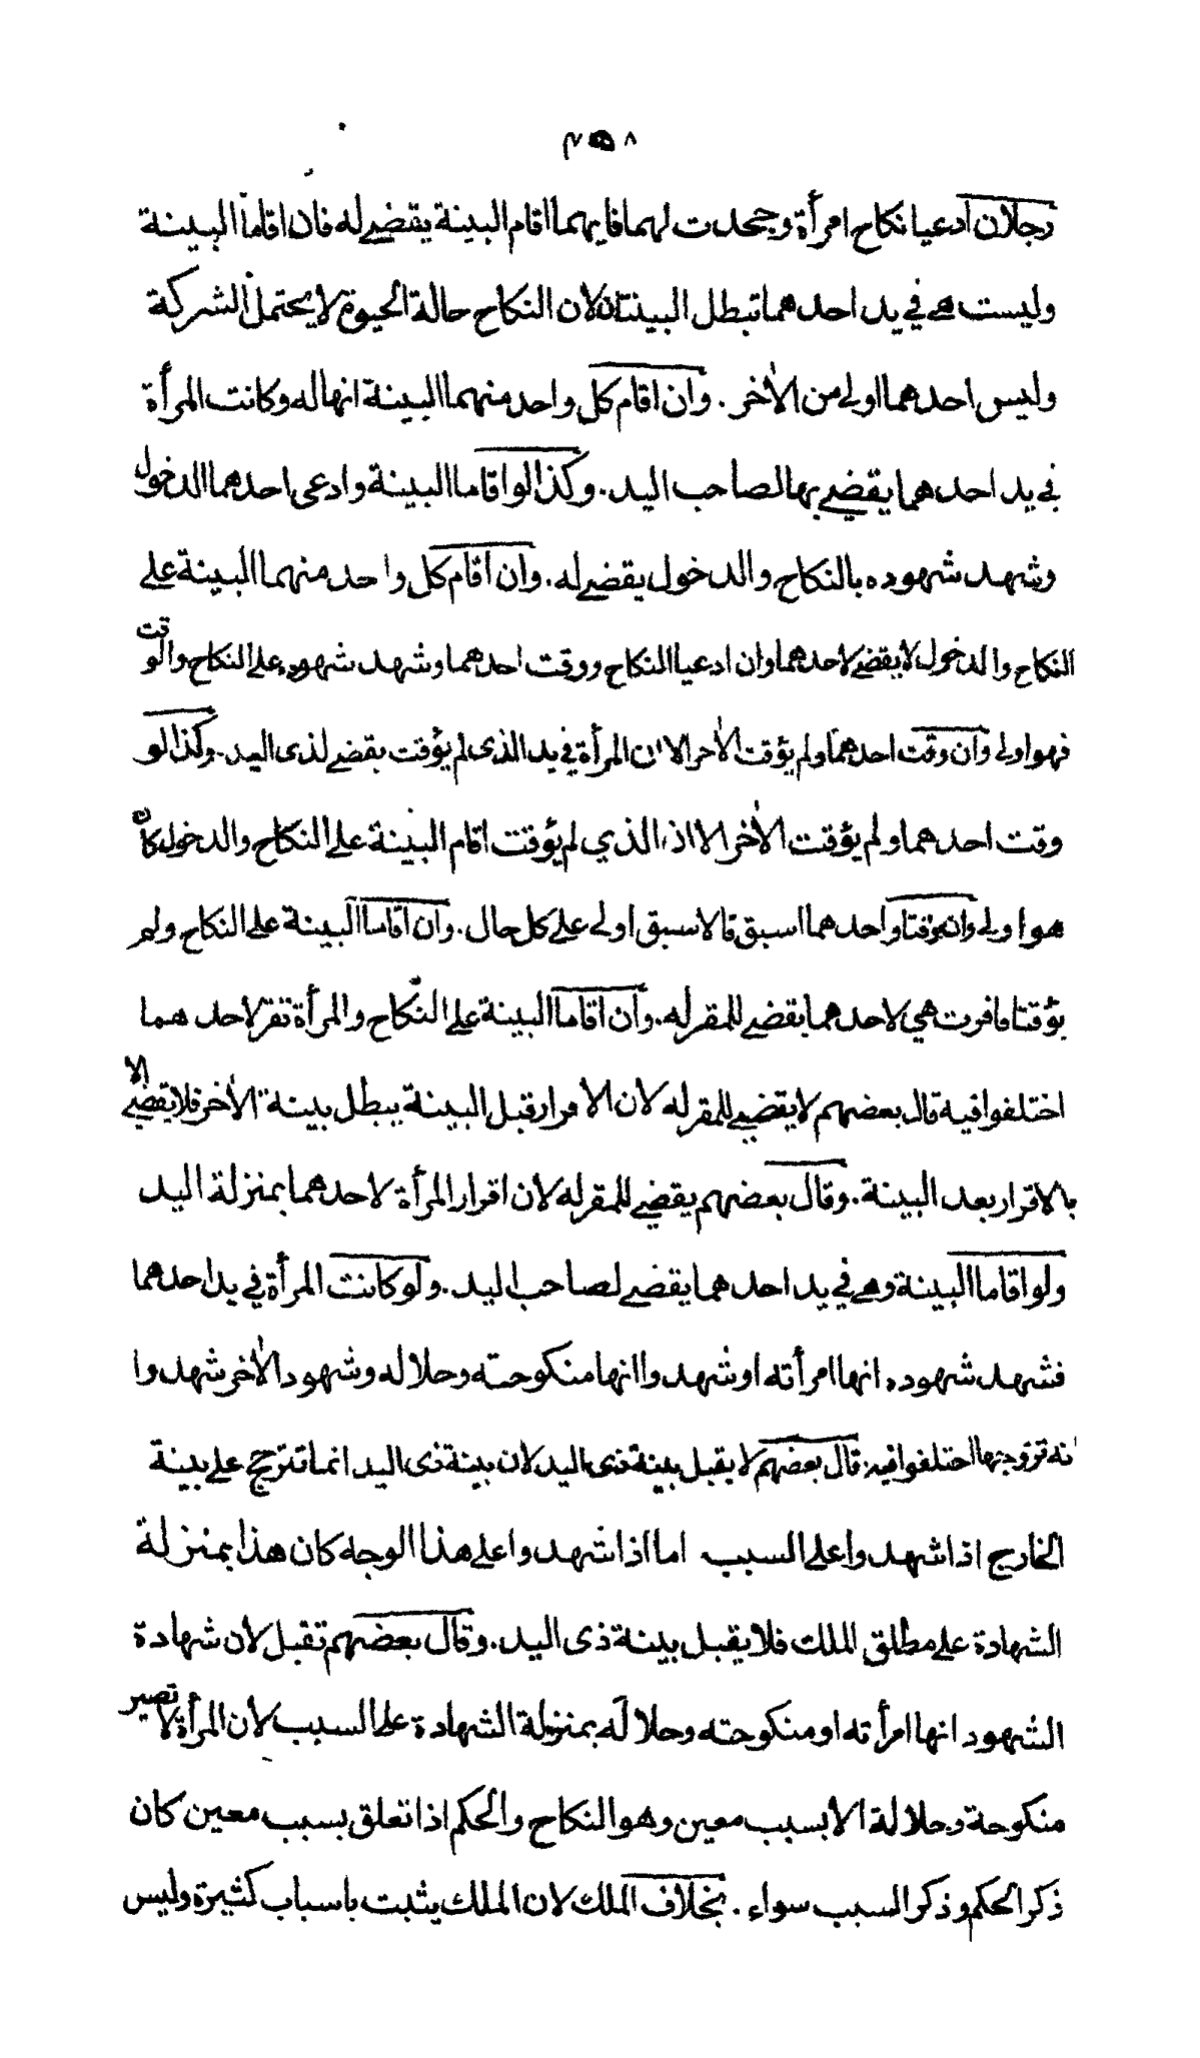 رجلان ادعيا نكاح امرأة وجحدت لهما فايهما اقام البينة يقضي له فان اقاما البينة
وليست هي في يد احدهما تبطل البينتان لان النكاح حالة الحيوة لا يحتمل الشركة
وليس احدهما اولى من الأخر . وان اقام كل واحد منهما البينة انها له وكانت المرأة
في يد احدهما يقضي بها لصاحب اليد . وكذا لو اقاما البينة وادعى احدهما الدخول
وشهد شهوده بالنكاح والدخول يقضي له . وان اقام كل واحد منهما البينة على
النكاح والدخول لا يقضي لاحدهما وان ادعيا النكاح ووقت احدهما وشهد شهوده على النكاح والوقت
فهو اولى وان وقت احدهما ولم يؤقت الأخر الا ان المرأة في يد الذي لم يؤقت يقضي لذي اليد . وكذا لو
وقت احدهما ولم يؤقت الأخر الا ان الذي لم يؤقت اقام البينة على النكاح والدخول كان
هو اولى وان وقتا واحدهما اسبق فالاسبق اولى على كل حال . وان اقاما البينة على النكاح ولم
يؤقتا فاقرت هي لاحدهما يقضي للمقر له . وان اقاما البينة على النكاح والمرأة تقر لاحدهما
اختلفوا فيه قال بعضهم لا يقضي للمقر له لان الاقرار قبل البينة يبطل ببينة الأخر فلا يقضي الا
بالاقرار بعد البينة . وقال بعضهم يقضي للمقر له لان اقرار المرأة لاحدهما بمنزلة اليد
ولو اقاما البينة وهي في يد احدهما يقضي لصاحب اليد . ولو كانت المرأة في يد احدهما
فشهد شهوده انها امرأته او شهدوا انها منكوحته وحلاله وشهود الأخر شهدوا
انه تزوجها اختلفوا فيه . قال بعضهم لا يقبل بينة ذي اليد لان بينة ذي اليد انما تترجح على بينة
الخارج اذا شهدوا على السبب اما اذا شهدوا على هذا الوجه كان هذا بمنزلة
الشهادة على مطلق الملك فلا يقبل بينة ذي اليد . وقال بعضهم تقبل لان شهادة
الشهود انها امرأته او منكوحته وحلاله بمنزلة الشهادة على السبب لان المرأة لا تصير
منكوحة وحلالة الا بسبب معين وهو النكاح والحكم اذا تعلق بسبب معين كان
ذكر الحكم وذكر السبب سواء . بخلاف الملك لان الملك يثبت باسباب كثيرة وليس